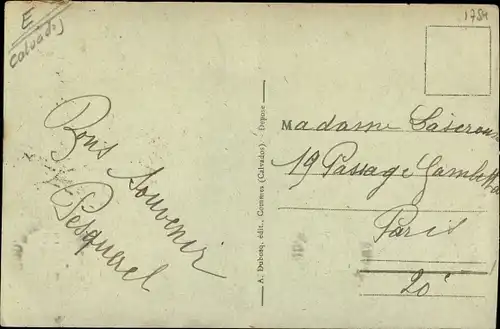 E
Calvados
1784
Bons
Souvenir
Pesquerel
A. Dubosq, édit., Commes (Calvados) - Déposé
Madame
19 Passage Gambetta
Paris
20e